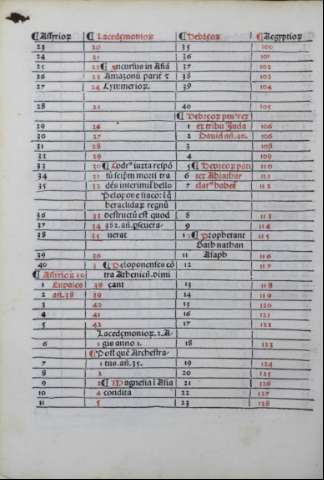 ¶Assyrioꝝ ¶Lacedęmonioꝝ ¶Hebręoꝝ ¶Aegyptioꝝ
23 20 35 100
24 21 36 101
25 22 ¶Incursus in Asiā 37 102
26 23 Amazonū parit̃ & 38 103
27 24 Cymmerioꝝ. 39 104
28 25 40 105
¶Hebręoꝝ
29 26 1 ex tribu Juda 106
30 27 2 Dauid añ. 40. 106
31 28 3 108
32 29 4 109
33 30 ¶Codr' iuxta respō 5 ¶Hebręoꝝ pon 110
34 31 tū seip̃m morti tra 6 tifex Abiathar 111
35 32 dēs interimit̃ bello 7 clar' habet̃ 112
Peloponēsiaco: iā
heraclidaꝝ regnū
36 33 destructū est quod 8 113
37 34 362. añ. pseuera- 9 114
38 35 uerat 10 ¶Prophetant 115
Gad: nathan
39 36 Asaph
40 ¶Peloponenses cō 12 117
¶Assyrioꝝ tra Athenieñ. dimi
1 Eupales 38 cant 13 118
2 añ. 38 39 14 119
3 40 15 120
4 41 16 121
5 42 17 122
Lacedęmonioꝝ. 2. A-
6 gis anno 1. 18 123
¶Post quē Archestra-
7 1 tus. añ. 35. 19 124
8 2 20 125
9 3 ¶Magnesia ī Asia 21 126
10 4 condita 22 127
11 5 23 128